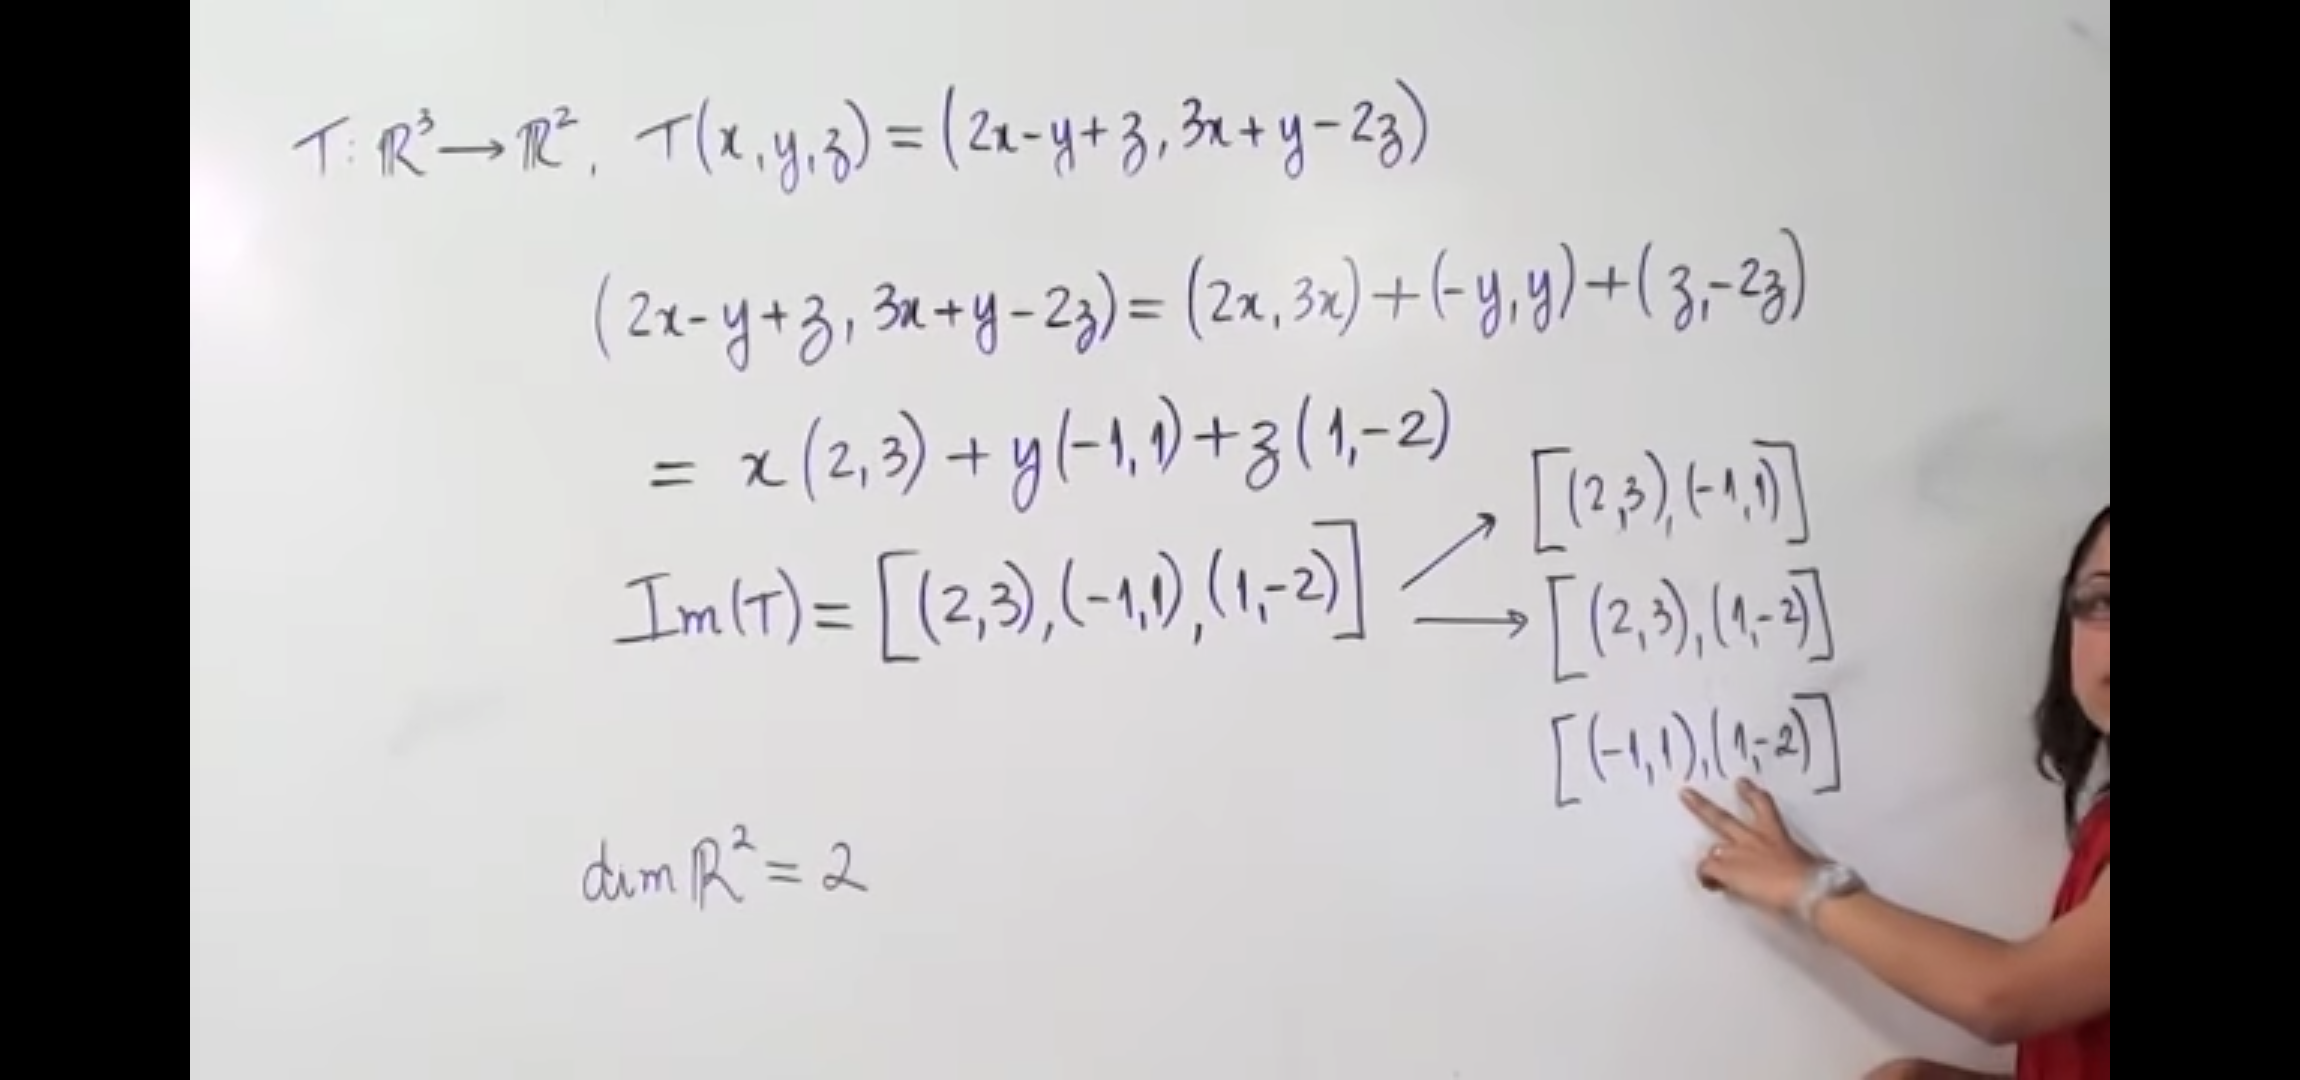 T: ℝ³ → ℝ², T(x,y,z) = (2x-y+z, 3x+y-2z)
(2x-y+z, 3x+y-2z) = (2x,3x)+(-y,y)+(z,-2z)
= x(2,3)+y(-1,1)+z(1,-2)
Im(T) = [(2,3),(-1,1),(1,-2)]
↗ [(2,3),(-1,1)]
→ [(2,3),(1,-2)]
[(-1,1),(1,-2)]
dim ℝ² = 2